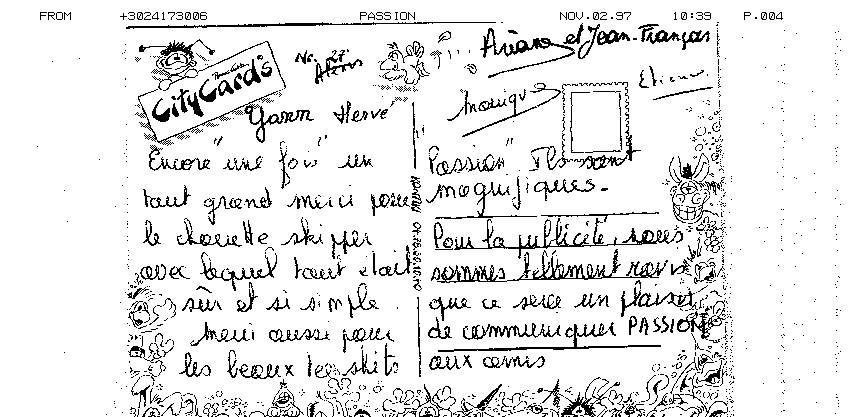 FROM +3024173006 PASSION NOV.02.97 10:39 P.004
CityCard's
No. 27
Ariane et Jean-François
Etienne
Monique
Yann Hervé
Encore "une fois" un
tout grand merci pour
le chouette skipper
avec lequel tout était
sûr et si simple.
Merci aussi pour
les beaux tee shirts
Passion" Ils sont
magnifiques.
Pour la publicité, nous
sommes tellement ravis
que ce sera un plaisir
de communiquer PASSION
aux amis